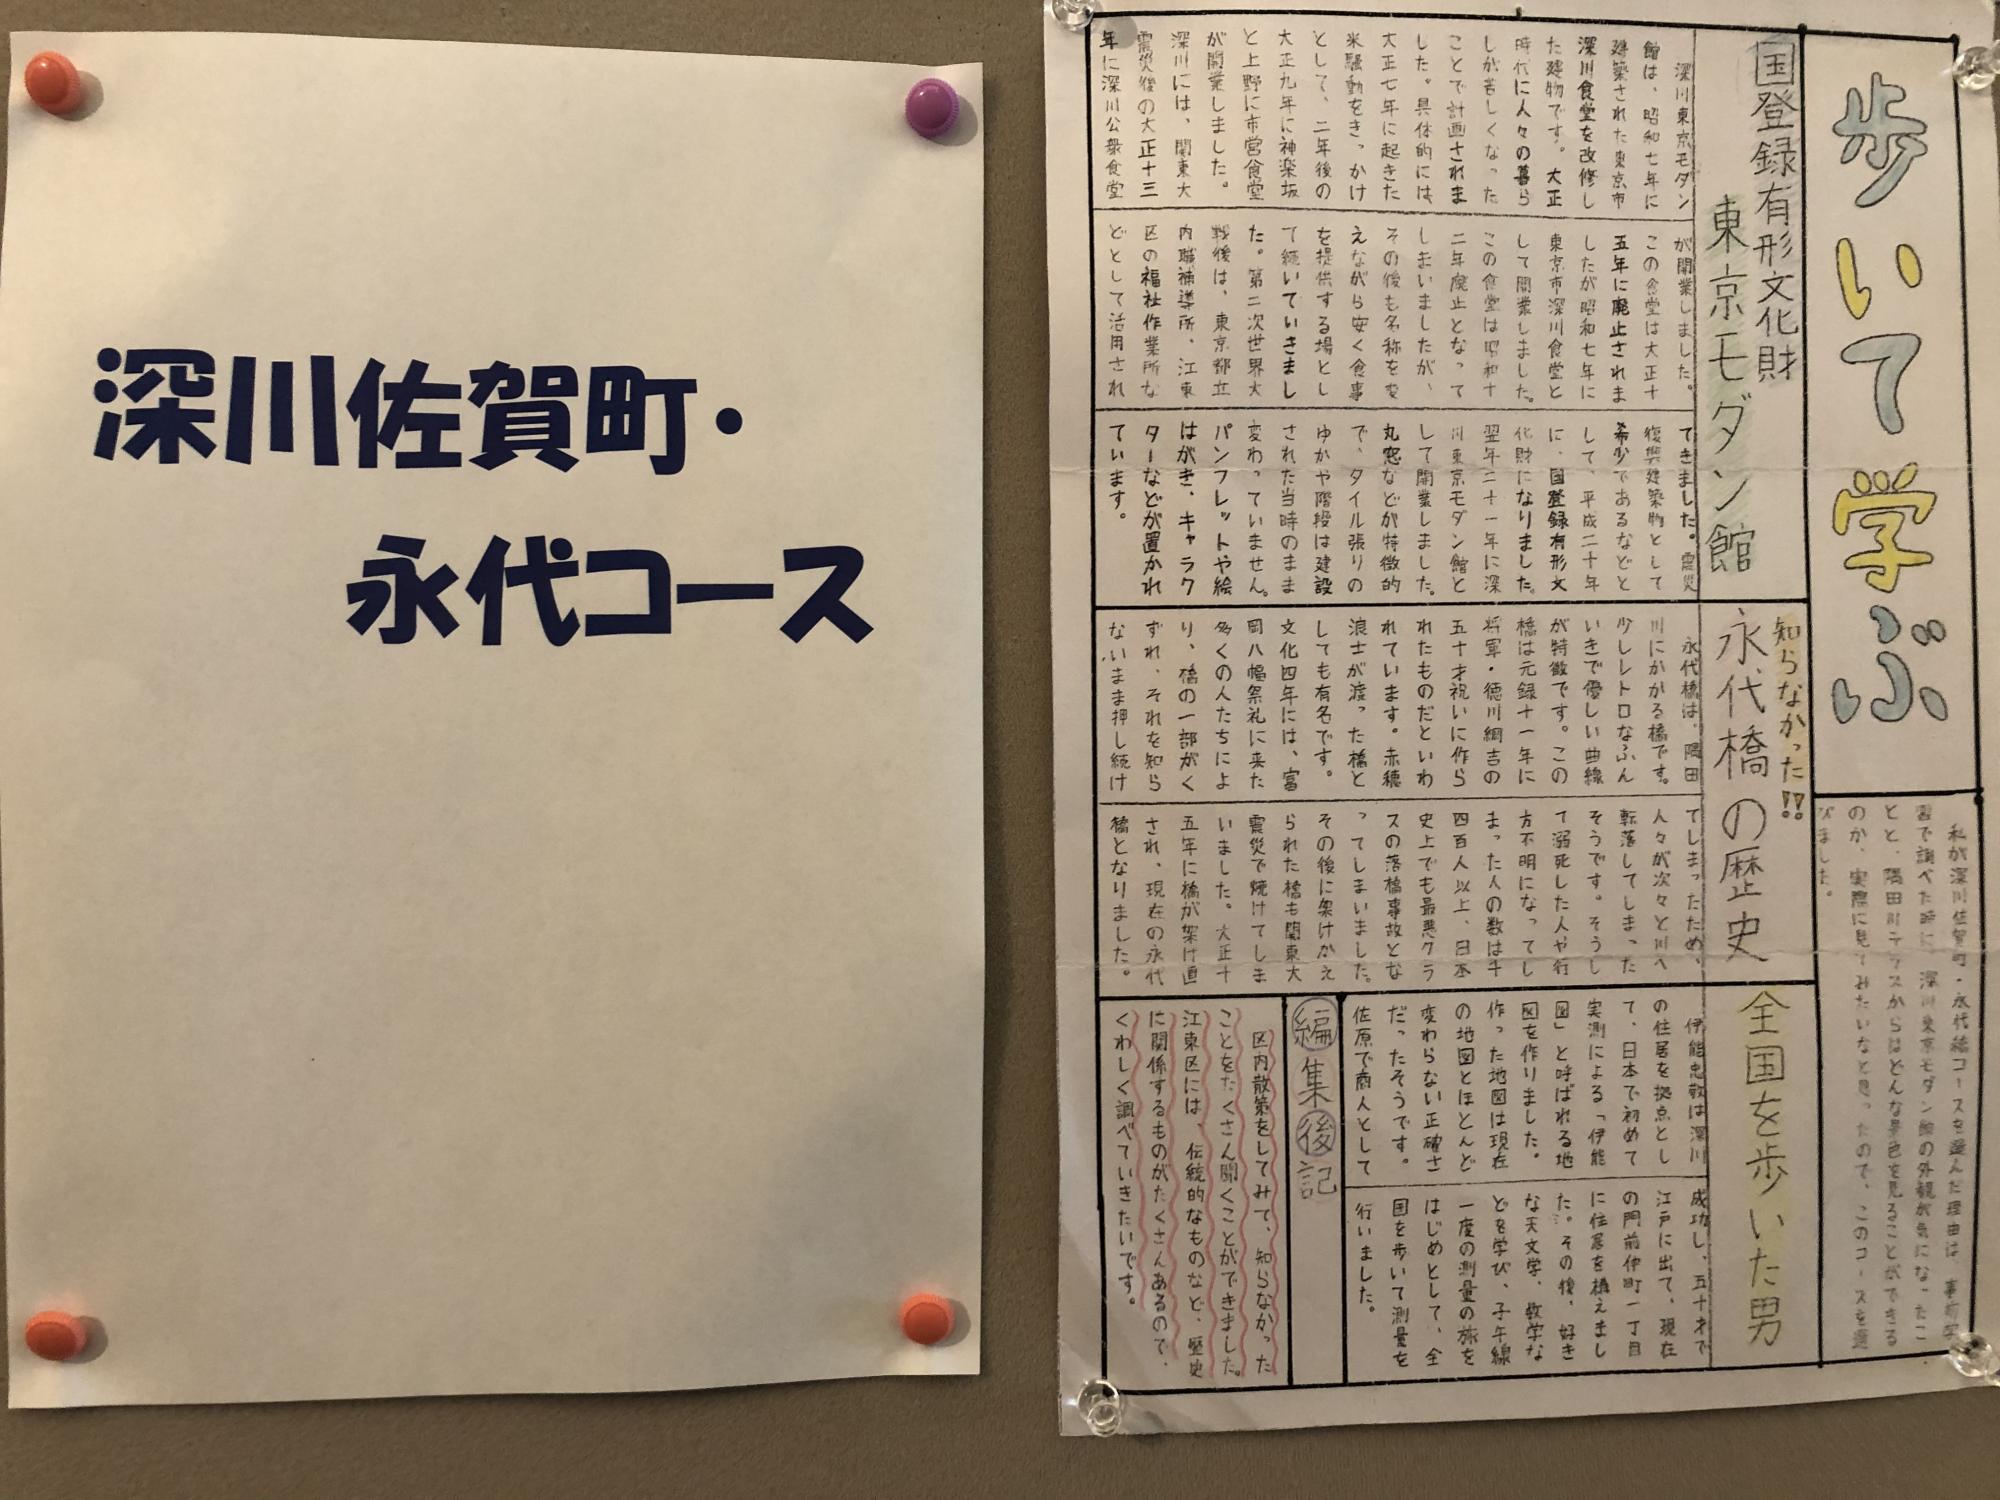 深川佐賀町・
永代コース
歩いて学ぶ
私が深川佐賀町・永代橋コースを選んだ理由は、事前学
習で調べた時に、深川東京モダン館の外観が気になったこ
とと、隅田川テラスからはどんな景色を見ることができる
のか、実際に見てみたいなと思ったので、このコースを選
びました。
国登録有形文化財
東京モダン館
深川東京モダン
館は、昭和七年に
建築された東京市
深川食堂を改修し
た建物です。大正
時代に人々の暮ら
しが苦しくなった
ことで計画されま
した。具体的には、
大正七年に起きた
米騒動をきっかけ
として、二年後の
大正九年に神楽坂
と上野に市営食堂
が開業しました。
深川には、関東大
震災後の大正十三
年に深川公衆食堂
が開業しました。
この食堂は大正十
五年に廃止されま
したが昭和七年に
東京市深川食堂と
して開業しました。
この食堂は昭和十
二年廃止となって
しまいましたが、
その後も名称を変
えながら安く食事
を提供する場とし
て続いていきまし
た。第二次世界大
戦後は、東京都立
内職補導所、江東
区の福祉作業所な
どとして活用され
てきました。震災
復興建築物として
希少であるなどと
して、平成二十年
に、国登録有形文
化財になりました。
翌年二十一年に深
川東京モダン館と
して開業しました。
丸窓などが特徴的
で、タイル張りの
ゆかや階段は建設
された当時のまま
変わっていません。
パンフレットや絵
はがき、キャラク
ターなどが置かれ
ています。
知らなかった!!
永代橋の歴史
永代橋は、隅田
川にかかる橋です。
少しレトロなふん
いきで優しい曲線
が特徴です。この
橋は元録十一年に
将軍・徳川綱吉の
五十才祝いに作ら
れたものだといわ
れています。赤穂
浪士が渡った橋と
しても有名です。
文化四年には、富
岡八幡祭礼に来た
多くの人たちによ
り、橋の一部がく
ずれ、それを知ら
ないまま押し続け
てしまったため、
人々が次々と川へ
転落してしまった
そうです。そうし
て溺死した人や行
方不明になってし
まった人の数は千
四百人以上、日本
史上でも最悪クラ
スの落橋事故とな
ってしまいました。
その後に架けかえ
られた橋も関東大
震災で焼けてしま
いました。大正十
五年に橋が架け直
され、現在の永代
橋となりました。
全国を歩いた男
伊能忠敬は深川
の住居を拠点とし
て、日本で初めて
実測による「伊能
図」と呼ばれる地
図を作りました。
作った地図は現在
の地図とほとんど
変わらない正確さ
だったそうです。
佐原で商人として
成功し、五十才で
江戸に出て、現在
の門前仲町一丁目
に住居を構えまし
た。その後、好き
な天文学、数学な
どを学び、子午線
一度の測量の旅を
はじめとして、全
国を歩いて測量を
行いました。
編集後記
区内散策をしてみて、知らなかった
ことをたくさん聞くことができました。
江東区には、伝統的なものなど、歴史
に関係するものがたくさんあるので、
くわしく調べていきたいです。